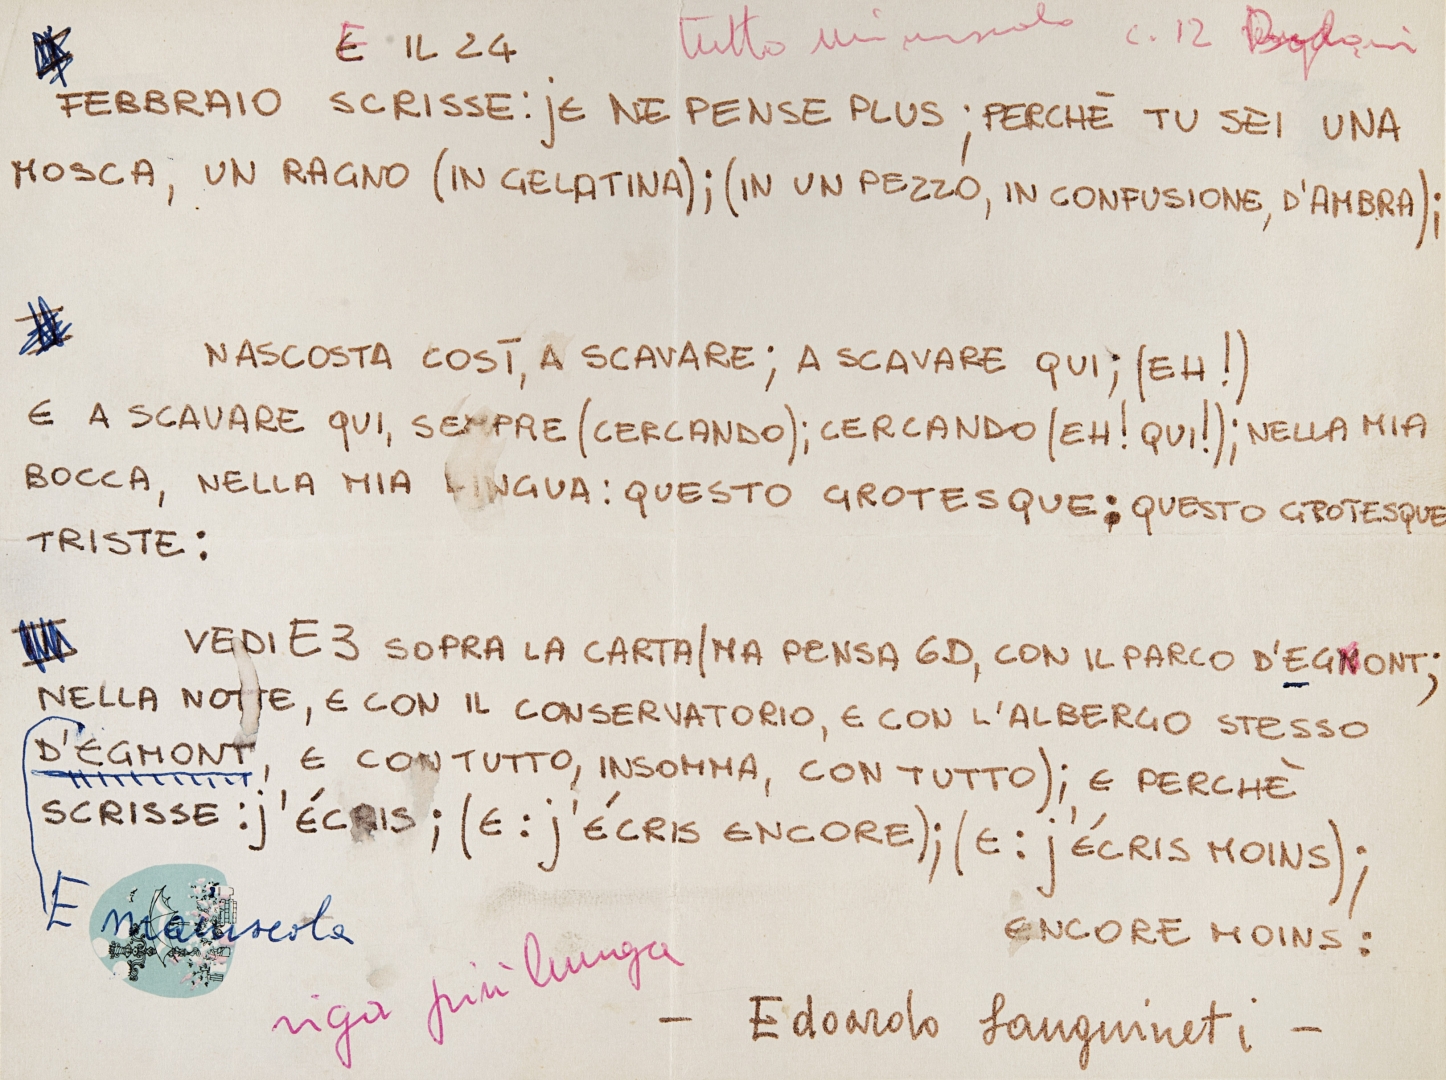 E IL 24 tutto minuscolo c. 12 Bodoni
FEBBRAIO SCRISSE: jE NE PENSE PLUS; PERCHÈ TU SEI UNA
MOSCA, UN RAGNO (IN GELATINA); (IN UN PEZZO, IN CONFUSIONE, D'AMBRA);
NASCOSTA COSÌ, A SCAVARE; A SCAVARE QUI; (EH!)
E A SCAVARE QUI, SEMPRE (CERCANDO); CERCANDO (EH! QUI!); NELLA MIA
BOCCA, NELLA MIA LINGUA: QUESTO GROTESQUE; QUESTO GROTESQUE
TRISTE:
VEDI E3 SOPRA LA CARTA (MA PENSA 6D, CON IL PARCO D'EGMONT;
NELLA NOTTE, E CON IL CONSERVATORIO, E CON L'ALBERGO STESSO
D'EGMONT, E CON TUTTO, INSOMMA, CON TUTTO); E PERCHÈ
SCRISSE: j'ÉCRIS; (E: j'ÉCRIS ENCORE); (E: j'ÉCRIS MOINS);
E maiuscola
ENCORE MOINS:
riga più lunga
— Edoardo Sanguineti —